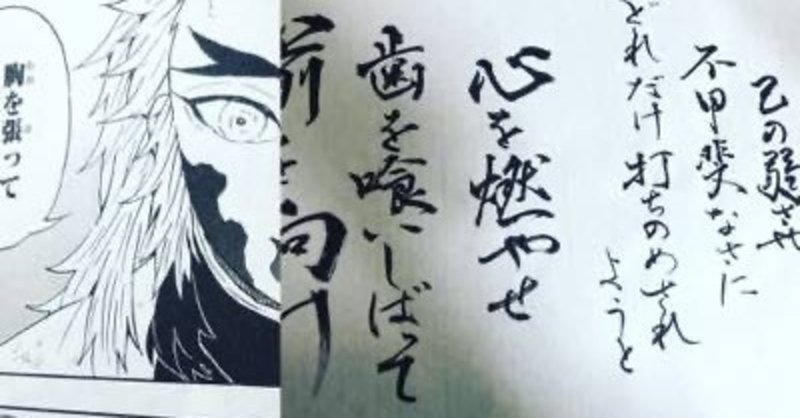 己の弱さや
不甲斐なさに
どれだけ打ちのめされ
ようと
心を燃やせ
歯を喰いしばって
前を向け
胸を張って